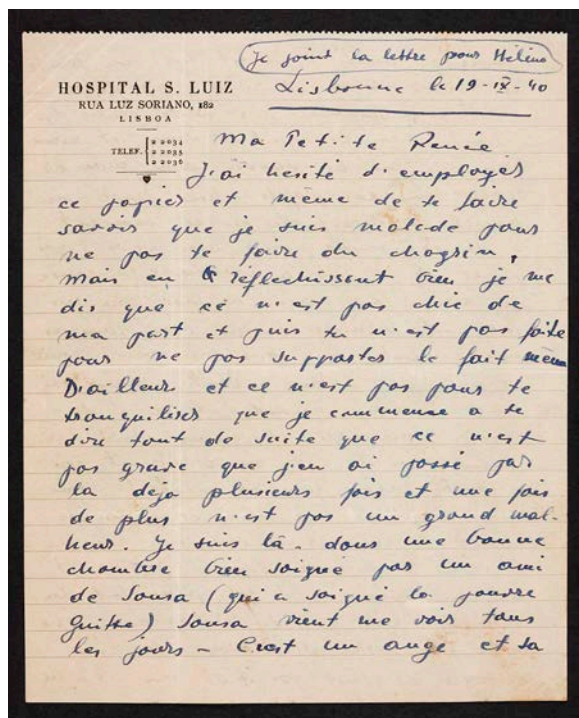 Je joint la lettre pour Hélène
HOSPITAL S. LUIZ
RUA LUZ SORIANO, 182
LISBOA
TELEF. 2 2034
2 2035
2 2036
Lisbonne le 19-IX-40
Ma Petite Renée
J'ai hesité d'employer
ce papier et même de te faire
savoir que je suis malade pour
ne pas te faire du chagrin,
mais en réflechissant bien je me
dis que ce n'est pas chic de
ma part et puis tu n'est pas faite
pour ne pas supporter le fait même
D'ailleurs et ce n'est pas pour te
tranquiliser que je commence a te
dire tout de suite que ce n'est
pas grave que j'en ai passé par
la déjà plusieurs fois et une fois
de plus n'est pas un grand mal-
heur. Je suis là - dans une bonne
chambre bien soigné par un ami
de Sousa (qui a soigné la pauvre
Guitte) Sousa vient me voir tous
les jours - C'est un ange et sa